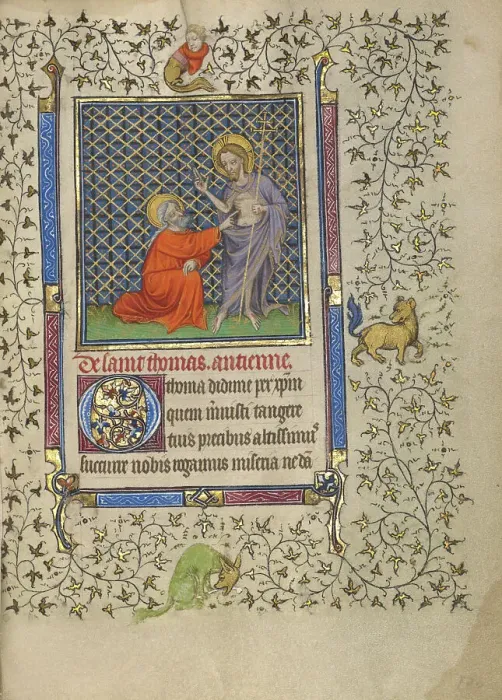 De saint thomas. antienne.
O thoma didime per xpm
quem m̃uisti tangere
tius precibus altissimꝰ
succurre nobis rogamus miseria ne dã